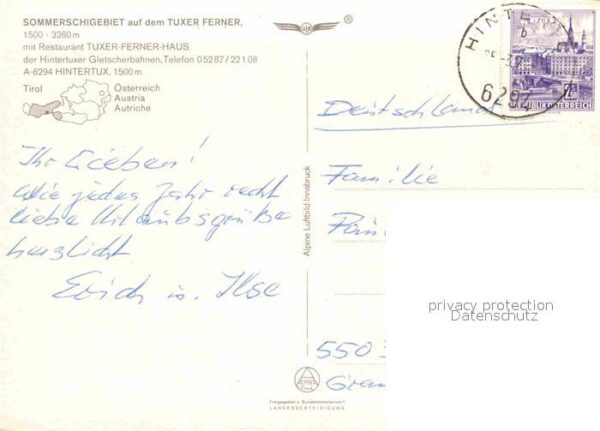 SOMMERSCHIGEBIET auf dem TUXER FERNER,
1500 - 3260 m
mit Restaurant TUXER-FERNER-HAUS
der Hintertuxer Gletscherbahnen, Telefon 05287/22108
A-6294 HINTERTUX, 1500 m
Tirol
Österreich
Austria
Autriche
Ihr Lieben!
Wie jedes Jahr recht
liebe Urlaubsgrüße
herzlichst
Erich u. Ilse
Alpine Luftbild Innsbruck
HINTE
b
6294
REPUBLIK ÖSTERREICH
Deutschland
Familie
privacy protection
Datenschutz
550
Freigegeben v. Bundesministerium f.
LANDESVERTEIDIGUNG